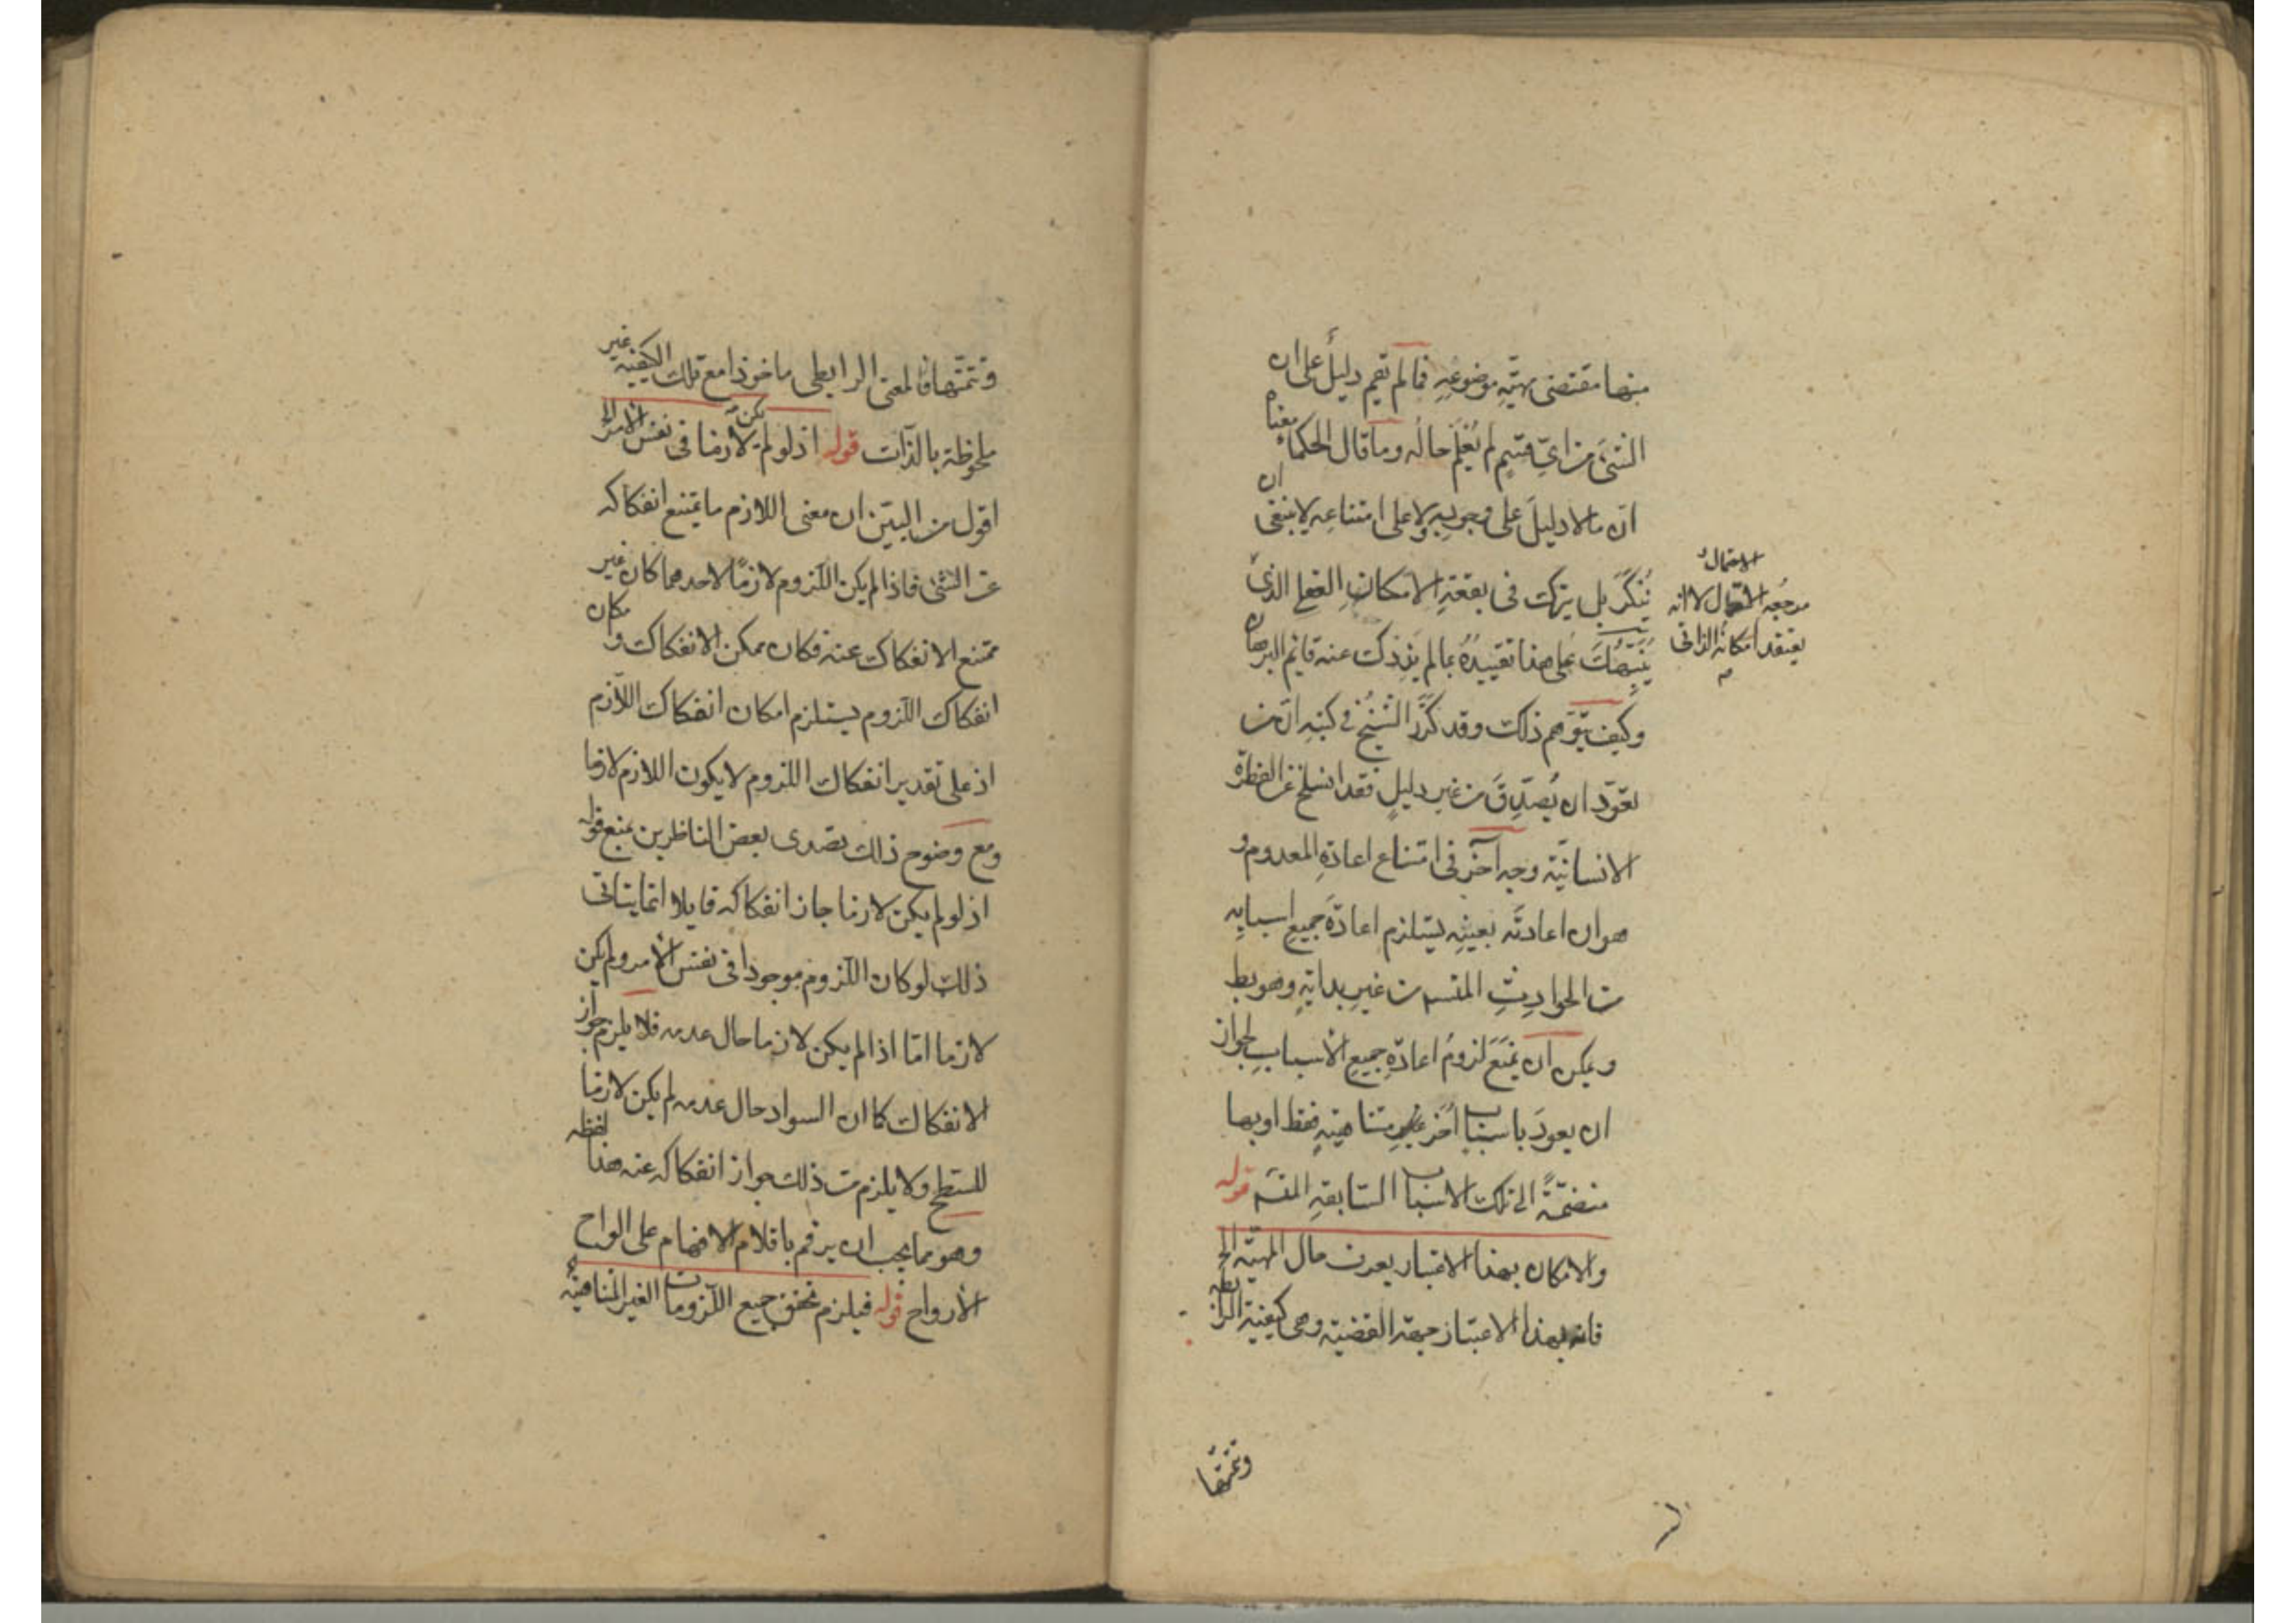 منها مقتضى مهيّة موضوعه فما لم تقم دليل على ان
الشئ من اىّ قسم لم يُعلَم حاله وما قال الحكماء معناه
انّ ما لا دليل على وجوبه ولا على امتناعه لا ينبغى ان
يُنكَر بل يترك فى بقعة الامكان العقلى الذى
ينبّهك على هذا تقييده بما لم يذدك عنه قائم البرهان
وكيف يتوهم ذلك وقد كرّر الشيخ فى كتبه انّ من
تعوّد ان يُصدّق من غير دليل فقد انسلخ عن الفطرة
الانسانيّة وجه آخر فى امتناع اعادة المعدوم و
هو ان اعادته بعينه يستلزم اعادة جميع اسبابه
من الحوادث من غير بداية وهو بط
ويمكن ان يمنع لزوم اعادة جميع الأسباب لجواز
ان يعود باسباب أخر غير متناهية فقط او بها
منضمّةً الى تلك الاسباب السابقة قوله
والامكان بهذا الاعتبار يعرف حال المهيّة الخ
فانه بهذا الاعتبار جهة القضية وهى كيفية الرابطة
الاحتمال
مرجعه لا انه
يعتقد امكانه الذاتى
وتتمتها
وتتمتها فالمعنى الرابطى ماخوذا مع تلك الكيفية غير
ملحوظة بالذات قوله اذ لو لم يكن لازما فى نفس الامر الخ
اقول من البيّن ان معنى اللازم ما يمتنع انفكاكه
عن الشئ فاذا لم يكن اللزوم لازمًا لاحدهما كان غير
ممتنع الانفكاك عنه فكان ممكن الانفكاك وامكان
انفكاك اللزوم يستلزم امكان انفكاك اللازم
اذ على تقدير انفكاك اللزوم لا يكون اللازم لازما
ومع وضوح ذلك تصدى بعض الناظرين بمنع قوله
اذ لو لم يكن لازما جاز انفكاكه قايلا انما يتاتى
ذلك لو كان اللزوم موجودا فى نفس الأمر ولم يكن
لازما امّا اذا لم يكن لازما حال عدمه فلا يلزم جواز
الانفكاك كما ان السواد حال عدمه لم يكن لازما
للسطح ولا يلزم من ذلك جواز انفكاكه عنه هذا لفظه
وهو مما يجب ان يرقم باقلام الافهام على الواح
الأرواح قوله فيلزم تحقق جميع اللزومات الغير المتناهية